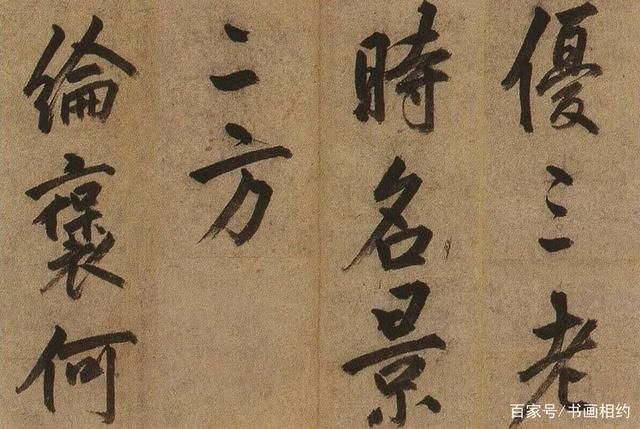 優三老
時名景
二方
綸褒何
百家号/书画相约